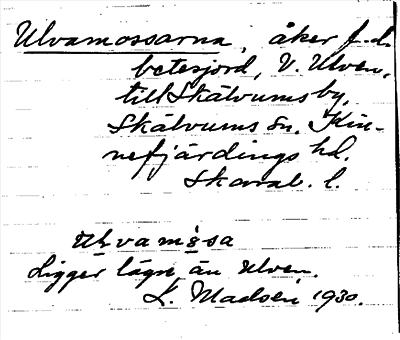 Ulvamossarna, åker f.d.
betesjord, V. Ulven,
till Skälvums by,
Skälvums sn, Kin-
nefjärdings hd.
Skarab. l.
Ulvamåsa
Ligger lägre än Ulven.
K. Madsén 1930.